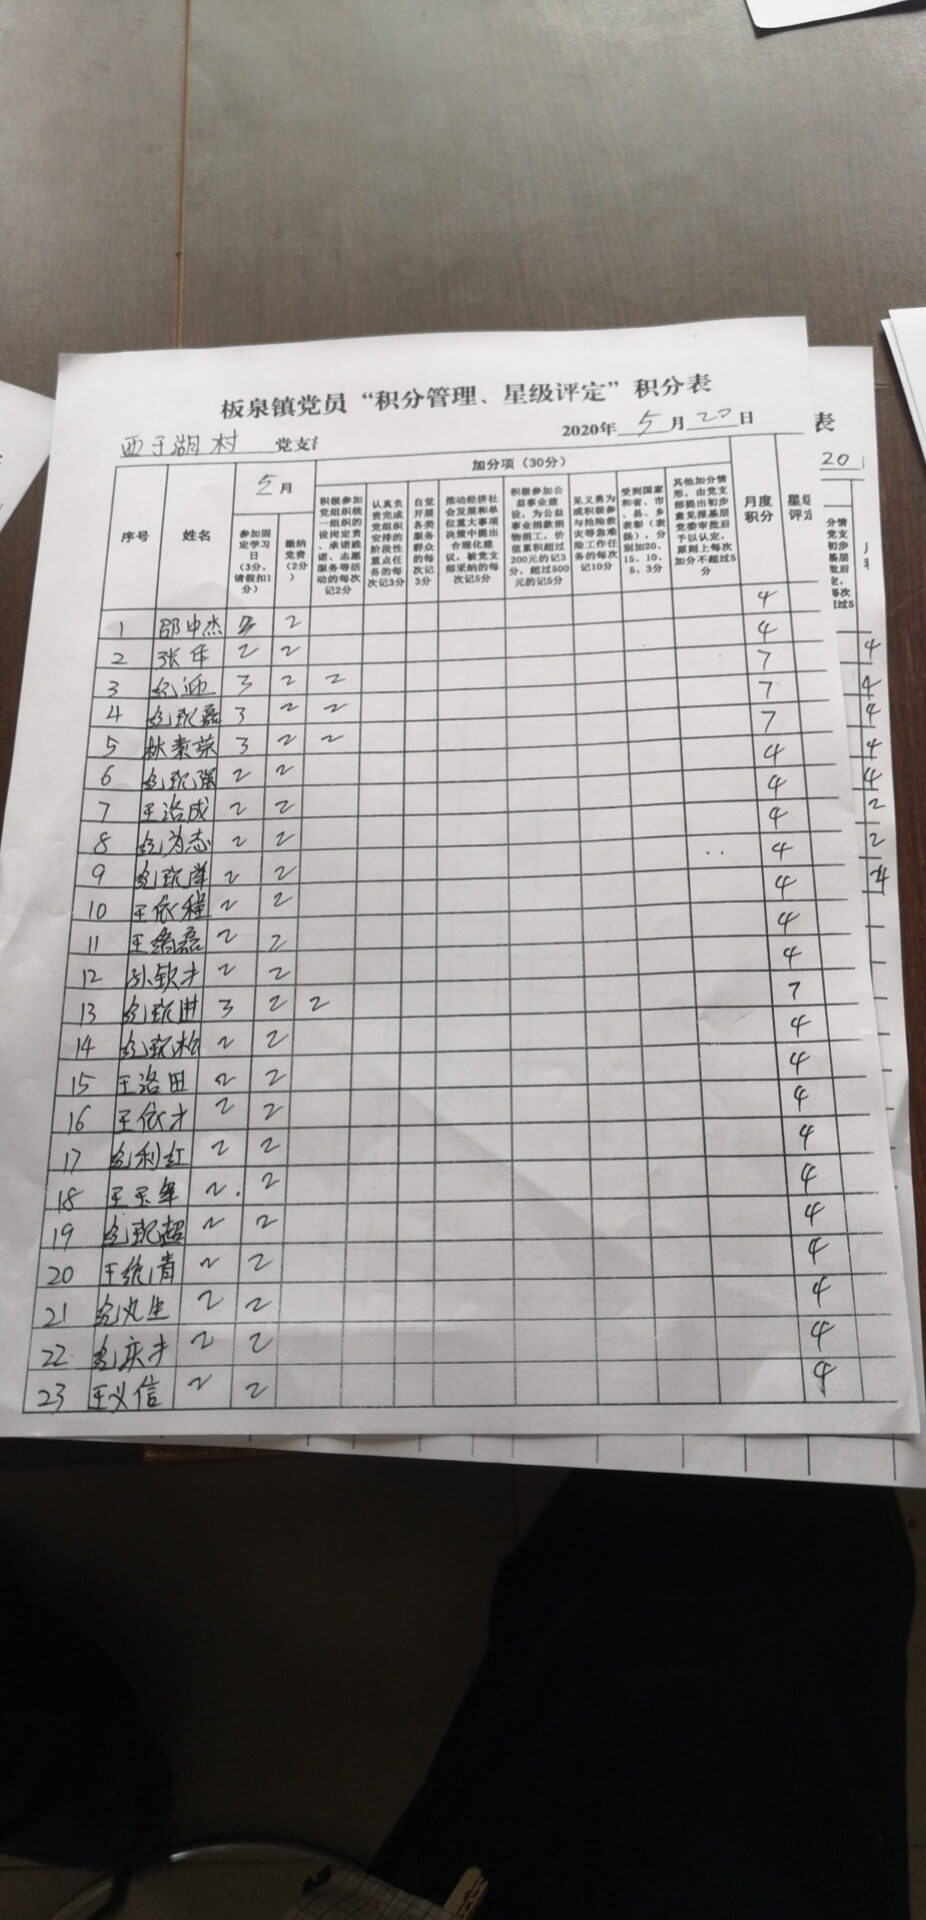 板泉镇党员“积分管理、星级评定”积分表
西于湖村 党支
2020年 5 月 20 日
序号 姓名 5月 加分项（30分） 月度积分 星级评定
参加固定学习日（3分，请假扣1分）
缴纳党费（2分）
积极参加党组织统一组织的设岗定责、承诺践诺、志愿服务等活动的每次记2分
认真负责完成党组织安排的阶段性重点任务的每次记3分
自觉开展各类服务群众的每次记3分
推动经济社会发展和单位重大事项决策中提出合理化建议，被党支部采纳的每次记5分
积极参加公益事业建设，为公益事业捐款捐物捐工，价值累积超过200元的记3分，超过500元的记5分
见义勇为或积极参与抢险救灾等急难险工作任务的每次记10分
受到国家和省、市、县、乡表彰（表扬），分别加20、15、10、5、3分
其他加分情形，由党支部提出初步意见报基层党委审批后予以认定，原则上每次加分不超过5分
4
1 邵中杰 2 4
2 张华 2 2 7
3 3 2 2 7
4 3 2 2 7
5 林素 3 2 2 4
6 2 2 4
7 王洛成 2 2 4
8 纪为志 2 2 4
9 2 2 4
10 王依程 2 2 4
11 王 磊 2 2 4
12 孙钦才 2 2 7
13 3 2 2 4
14 2 2 4
15 王洛田 2 2 4
16 王依才 2 2 4
17 纪利红 2 2 4
18 王玉 2 2 4
19 2 2 4
20 王统清 2 2 4
21 2 2 4
22 纪庆才 2 2 4
23 王义信 2 2
表
20
4
4
4
4
4
2
2
4